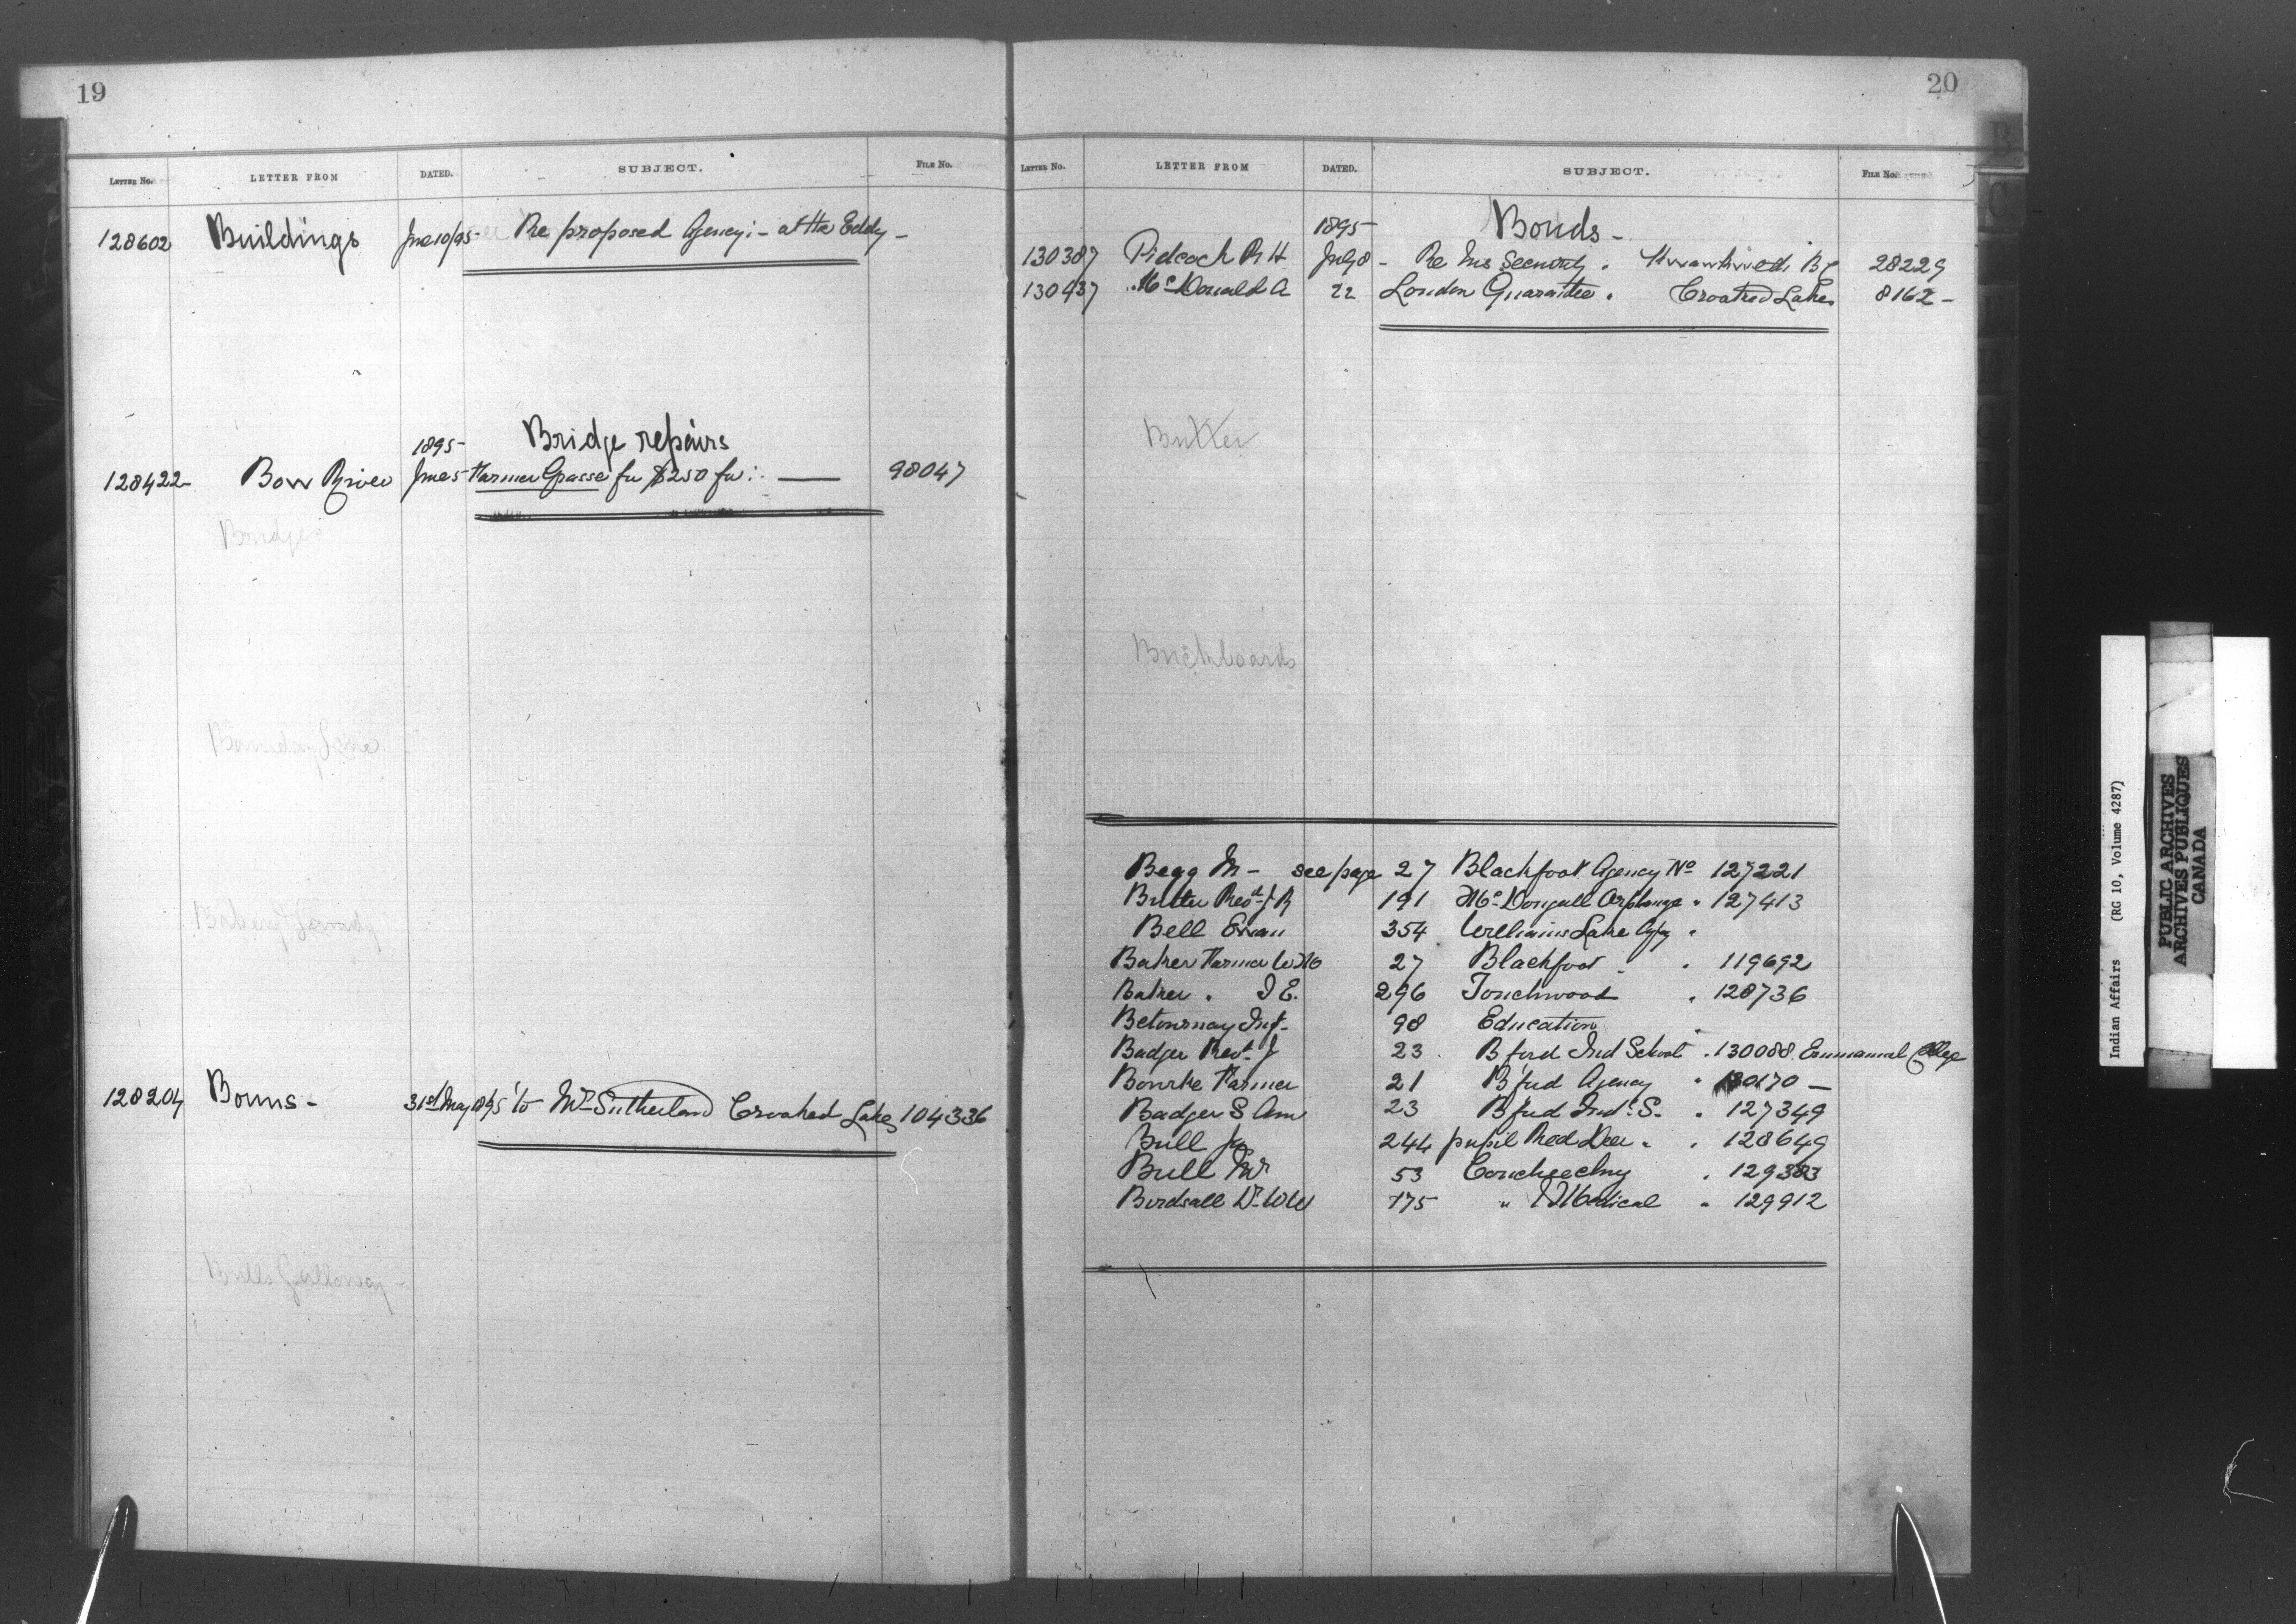 19
LETTER No. LETTER FROM DATED. SUBJECT. FILE No.
128602 Buildings June 10/95 Re proposed Agency :- at the Eddy -
1895- Bridge repairs
128422- Bow River June 5 Farmer for $250 for : — 98047
Bridges
Boundary Line
Bakery
128204 Bonus - 31st May 1895 to Mr Sutherland Crooked Lakes 104336
Bulls Galloway -
20
B
C
LETTER No. LETTER FROM DATED. SUBJECT. FILE No.
1895- Bonds -
130387 Pidcock R H July 8 - Re his Security . B C 28229
130437 McDonald A 22 London Guarantee . Crooked Lakes 8162 -
Butter
Buckboards
Begg M - see page 27 Blackfoot Agency No 127221
Butler Revd J R 191 McDougall Orphanage " 127413
Bell Ewan 354 Williams Lake Agy "
Baker Farmer W M 27 Blackfoot " " 119692
Baker " I E. 296 Touchwood " 128736
Betournay 98 Education "
Badger Revd J 23 Bford Ind School " 130088 Emmanuel College
Bourke Farmer 21 Bford Agency " 130170 -
Badger S Am 23 Bford Indl S. " 127349
Bull 244 pupil Red Deer " " 128649
Bull Mr 53 " 129383
Birdsall Dr W W 175 " Medical " 129912
Indian Affairs (RG 10, Volume 4287)
PUBLIC ARCHIVES
ARCHIVES PUBLIQUES
CANADA